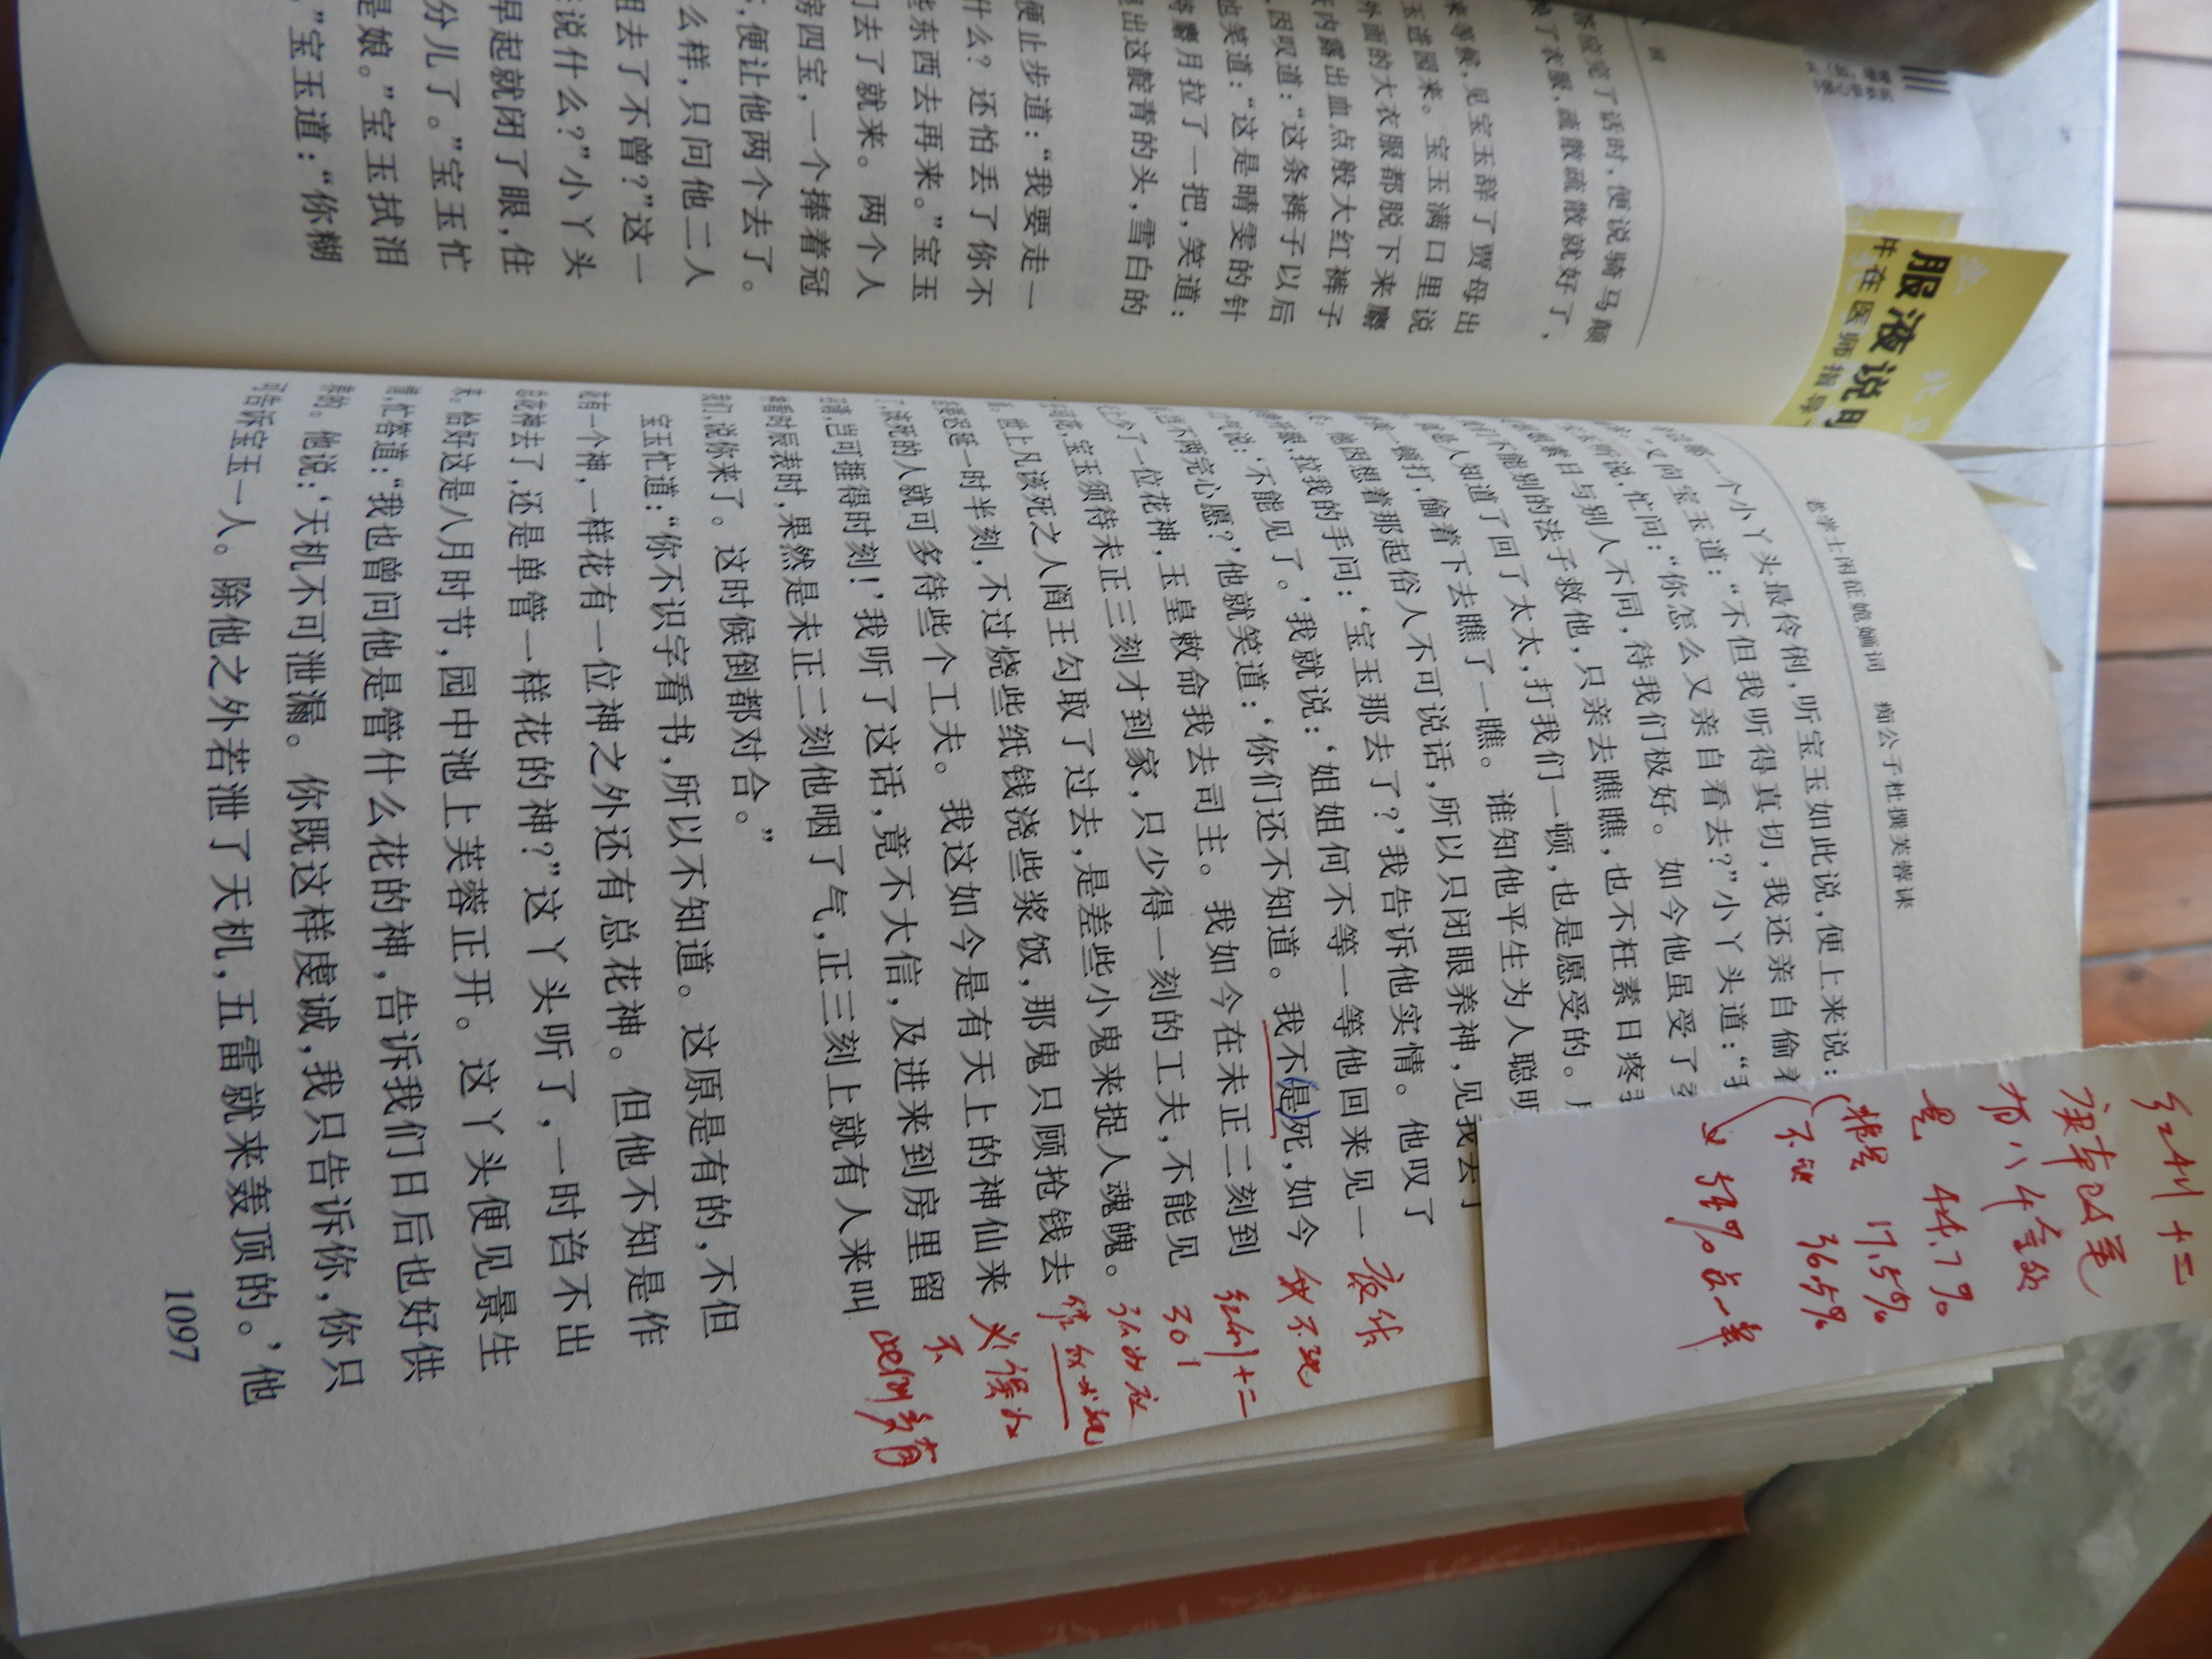 便止步道：“我要走一
什么？还怕丢了你不
些东西去再来。”宝玉
们去了就来。两个人
房四宝，一个捧着冠
，便让他两个去了。
么样，只问他二人
姐去了不曾？”这一
说什么？”小丫头
早起就闭了眼，住
分儿了。”宝玉忙
是娘。”宝玉拭泪
。”宝玉道：“你糊
答应完了话时，便说骑马颠
换了衣服，疏散疏散就好了，
来等候，见宝玉辞了贾母出
玉进园来。宝玉满口里说
外面的大衣服都脱下来麝
内露出血点般大红裤子
因叹道：“这条裤子以后
笑道：“这是晴雯的针
将麝月拉了一把，笑道：
出这靛青的头，雪白的
服液说明
并在医师指导
老学士闲征姽婳词 痴公子杜撰芙蓉诔
一个小丫头最伶俐，听宝玉如此说，便上来说：
又向宝玉道：“不但我听得真切，我还亲自偷着
听说，忙问：“你怎么又亲自看去？”小丫头道：“我
素日与别人不同，待我们极好。如今他虽受了委
不能别的法子救他，只亲去瞧瞧，也不枉素日疼我
人知道了回了太太，打我们一顿，也是愿受的。
一顿打，偷着下去瞧了一瞧。谁知他平生为人聪明
他因想着那起俗人不可说话，所以只闭眼养神，见我去了
睁开眼，拉我的手问：‘宝玉那去了？’我告诉他实情。他叹了
口气说：‘不能见了。’我就说：‘姐姐何不等一等他回来见一
不两完心愿？’他就笑道：‘你们还不知道。我不是死，如今
少了一位花神，玉皇敕命我去司主。我如今在未正二刻到
花，宝玉须待未正三刻才到家，只少得一刻的工夫，不能见
世上凡该死之人阎王勾取了过去，是差些小鬼来捉人魂魄。
要迟延一时半刻，不过烧些纸钱浇些浆饭，那鬼只顾抢钱去
该死的人就可多待些个工夫。我这如今是有天上的神仙来
请，岂可捱得时刻！’我听了这话，竟不大信，及进来到房里留
看时辰表时，果然是未正二刻他咽了气，正三刻上就有人来叫
我们，说你来了。这时候倒都对合。”
宝玉忙道：“你不识字看书，所以不知道。这原是有的，不但
有一个神，一样花有一位神之外还有总花神。但他不知是作
花神去了，还是单管一样花的神？”这丫头听了，一时诌不出
来。恰好这是八月时节，园中池上芙蓉正开。这丫头便见景生
情，忙答道：“我也曾问他是管什么花的神，告诉我们日后也好供
养的。他说：‘天机不可泄漏。你既这样虔诚，我只告诉你，你只
可告诉宝玉一人。除他之外若泄了天机，五雷就来轰顶的。’他
1097
301
44.7%
17.5%
36.5%